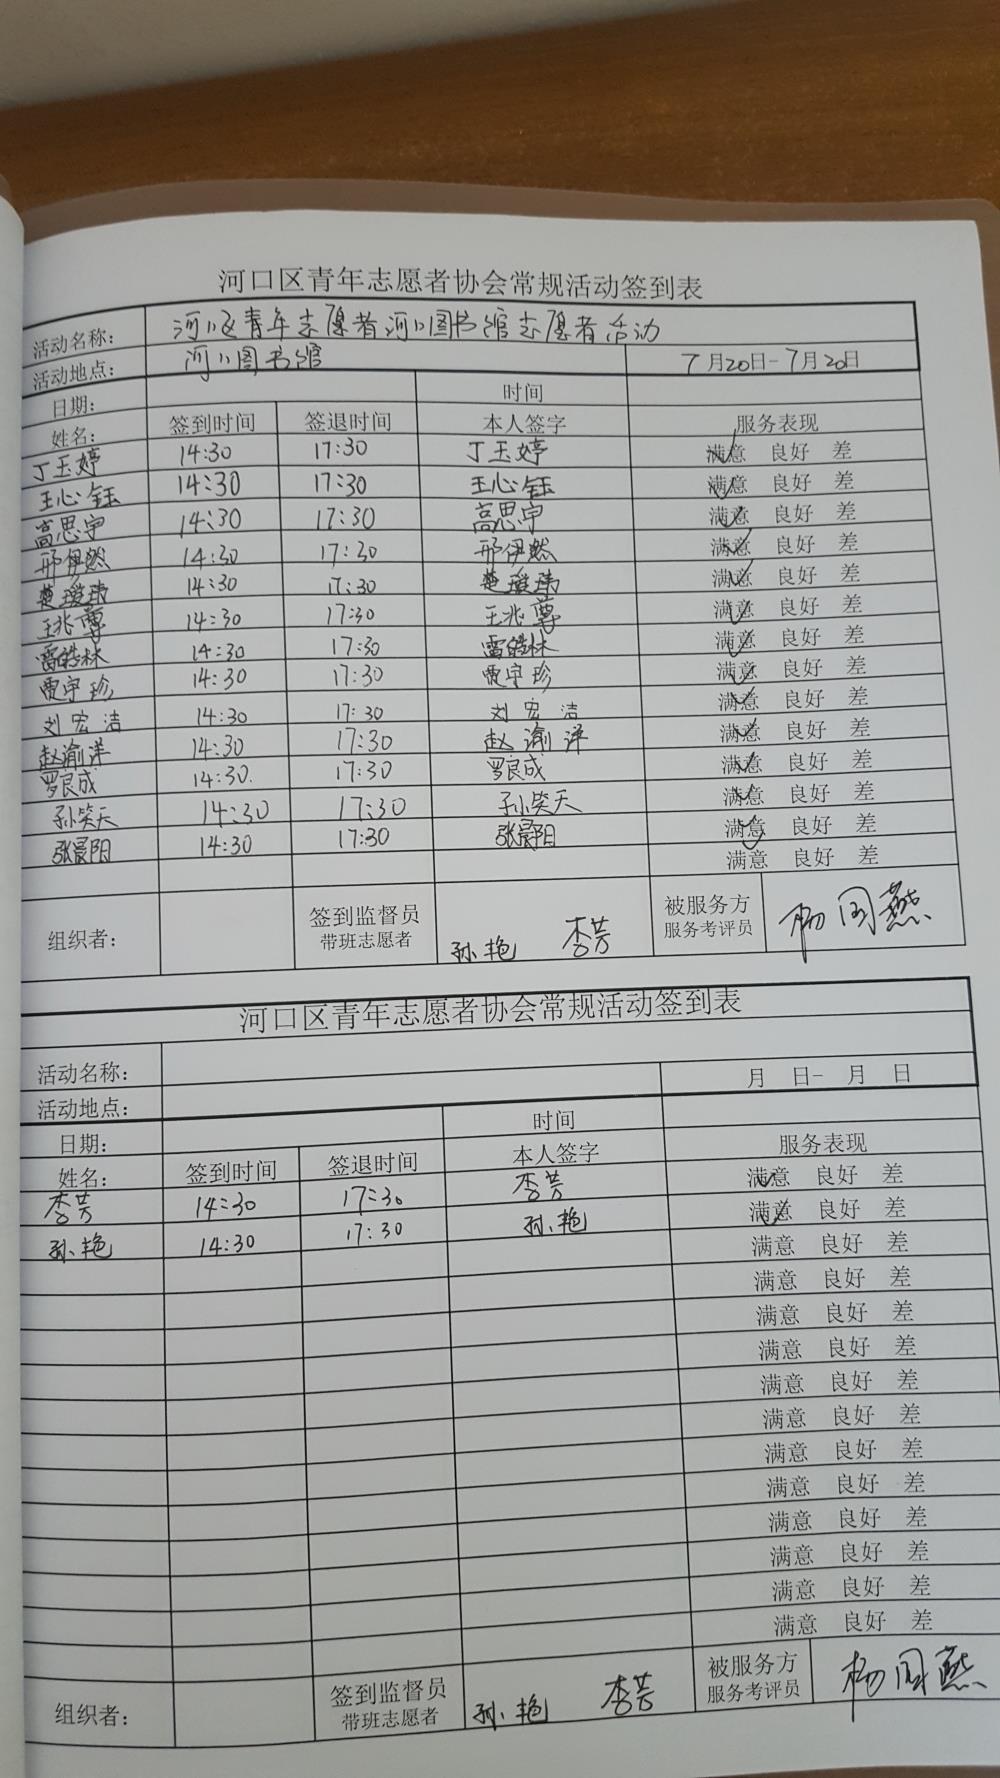 河口区青年志愿者协会常规活动签到表
活动名称: 河口区青年志愿者河口图书馆志愿者活动
活动地点: 河口图书馆 7月20日-7月20日
日期: 时间
姓名: 签到时间 签退时间 本人签字 服务表现
丁玉婷 14:30 17:30 丁玉婷 满意 良好 差
王心钰 14:30 17:30 王心钰 满意 良好 差
高思宇 14:30 17:30 高思宇 满意 良好 差
邢伊然 14:30 17:30 邢伊然 满意 良好 差
楚瑷玮 14:30 17:30 楚瑷玮 满意 良好 差
王兆尊 14:30 17:30 王兆尊 满意 良好 差
雷皓林 14:30 17:30 雷皓林 满意 良好 差
贾宇珍 14:30 17:30 贾宇珍 满意 良好 差
刘宏洁 14:30 17:30 刘宏洁 满意 良好 差
赵渝洋 14:30 17:30 赵渝洋 满意 良好 差
罗良成 14:30. 17:30 罗良成 满意 良好 差
孙笑天 14:30 17:30 孙笑天 满意 良好 差
张晨阳 14:30 17:30 张晨阳 满意 良好 差
满意 良好 差
组织者: 签到监督员 孙艳 李芳 被服务方 杨国燕
带班志愿者 服务考评员
河口区青年志愿者协会常规活动签到表
活动名称:
活动地点: 月 日- 月 日
日期: 时间
姓名: 签到时间 签退时间 本人签字 服务表现
李芳 14:30 17:30 李芳 满意 良好 差
孙艳 14:30 17:30 孙艳 满意 良好 差
满意 良好 差
满意 良好 差
满意 良好 差
满意 良好 差
满意 良好 差
满意 良好 差
满意 良好 差
满意 良好 差
满意 良好 差
满意 良好 差
满意 良好 差
满意 良好 差
组织者: 签到监督员 孙艳 李芳 被服务方 杨国燕
带班志愿者 服务考评员